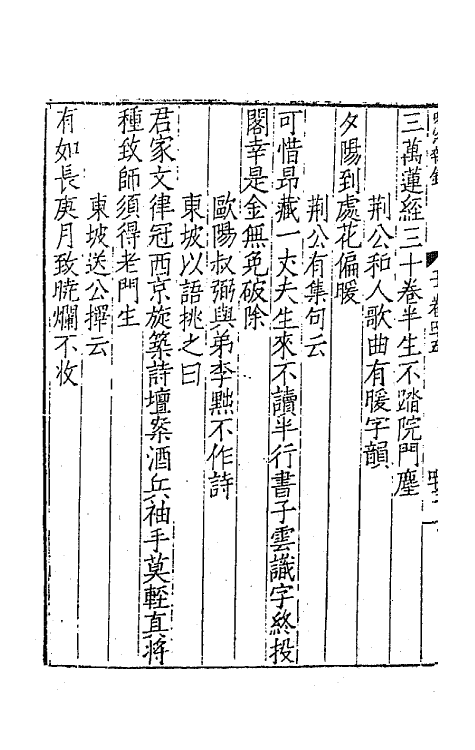 三萬蓮經三十卷半生不踏院門塵
荆公和人歌曲有暖字韻
夕陽到處花偏暖
荆公有集句云
可惜昂藏一丈夫生來不讀半行書子雲識字終投
閣幸是金無免破除
歐陽叔弼與弟季黙不作詩
東坡以語挑之曰
君家文律冠西京旋築詩壇案酒兵袖手莫輕真將
種致師須得老門生
東坡送公擇云
有如長庚月致曉爛不收